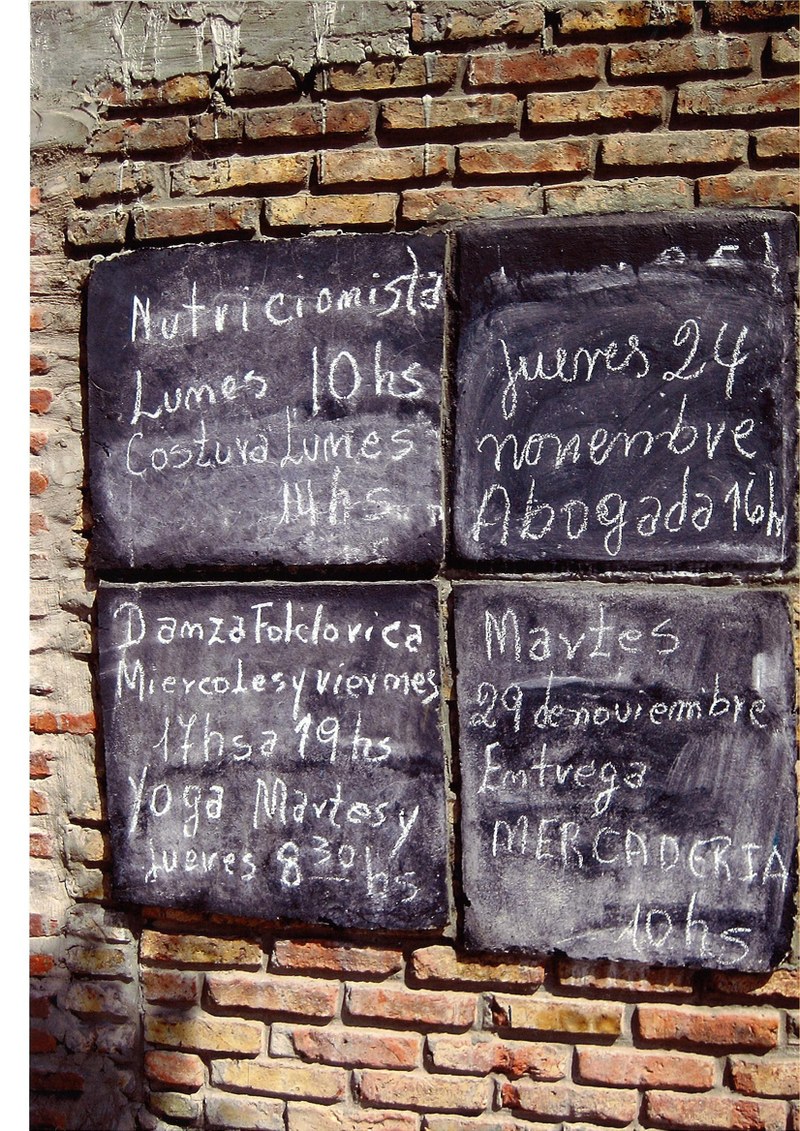 Nutricionista
Lunes 10hs
Costura Lunes
14hs
jueves 24
noviembre
Abogada 16h
Danza Folclorica
Miercoles y viernes
17hs a 19hs
Yoga Martes y
Jueves 8 30 hs
Martes
29 de noviembre
Entrega
MERCADERIA
10hs